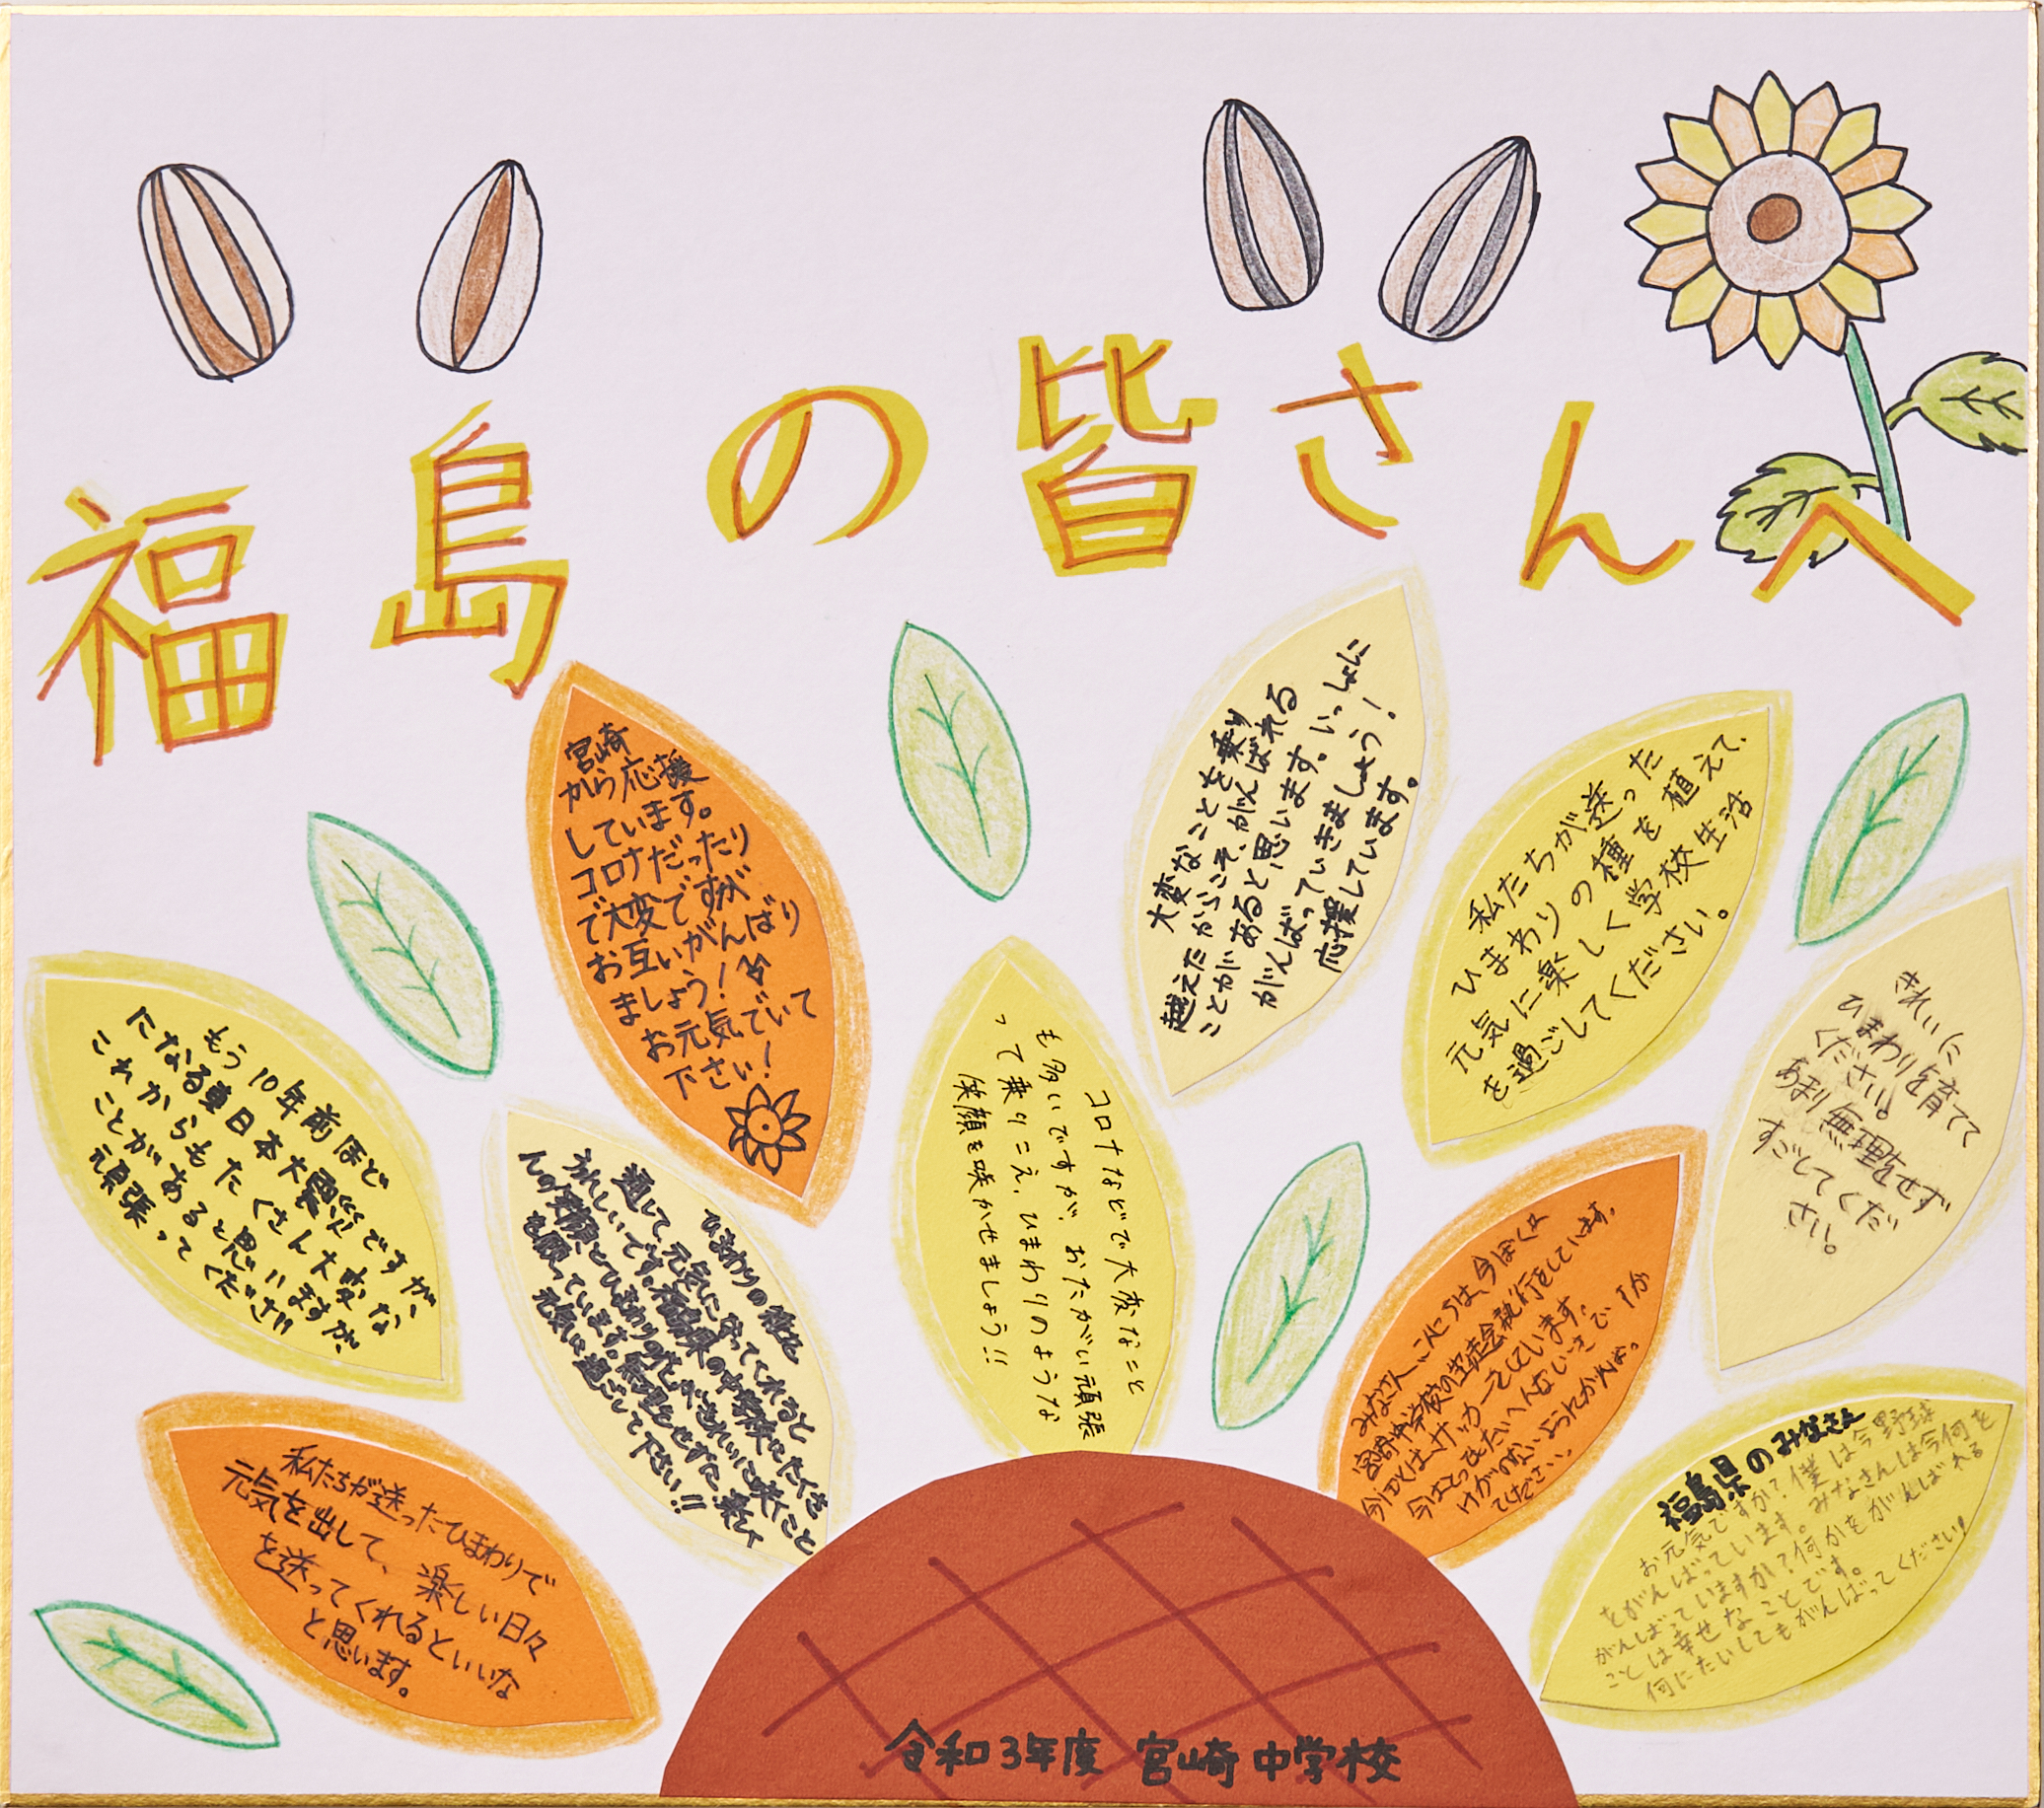 福島の皆さんへ
宮崎
から応援
しています。
コロナだったり
で大変ですが
お互いがんばり
ましょう!
お元気でいて
下さい!
大変なことを乗り
越えたからこそ、がんばれる
ことがあると思います。いっしょに
がんばっていきましょう!
応援しています。
私たちが送った
ひまわりの種を植えて、
元気に楽しく学校生活
を過ごしてください。
きれいに
ひまわりを育てて
ください。
あまり無理をせず
すごしてくだ
さい。
もう10年前ほど
になる東日本大震災ですが、
これからもたくさん大変な
ことがあると思いますが、
頑張ってください!!
ひまわりの種を
通して、元気になってくれると
うれしいです。福島県の中学校にたくさ
んの笑顔とひまわりの花がきれいに咲くこと
を願っています。無理をせずに、楽しく
元気に過ごして下さい!!
コロナなどで大変なこと
も多いですが、おたがい頑張
って乗りこえ、ひまわりのような
笑顔を咲かせましょう!!
みなさん、こんにちは、今ぼくは
宮崎中学校の生徒会執行をしています。
けがのないようにがんばっ
てください。
私たちが送ったひまわりで
元気を出して、楽しい日々
を送ってくれるといいな
と思います。
福島県のみなさん
お元気ですか?僕は今野球
をがんばっています。みなさんは今何を
がんばっていますか?何かをがんばれる
ことは幸せなことです。
何にたいしてもがんばってください!
令和3年度 宮崎中学校